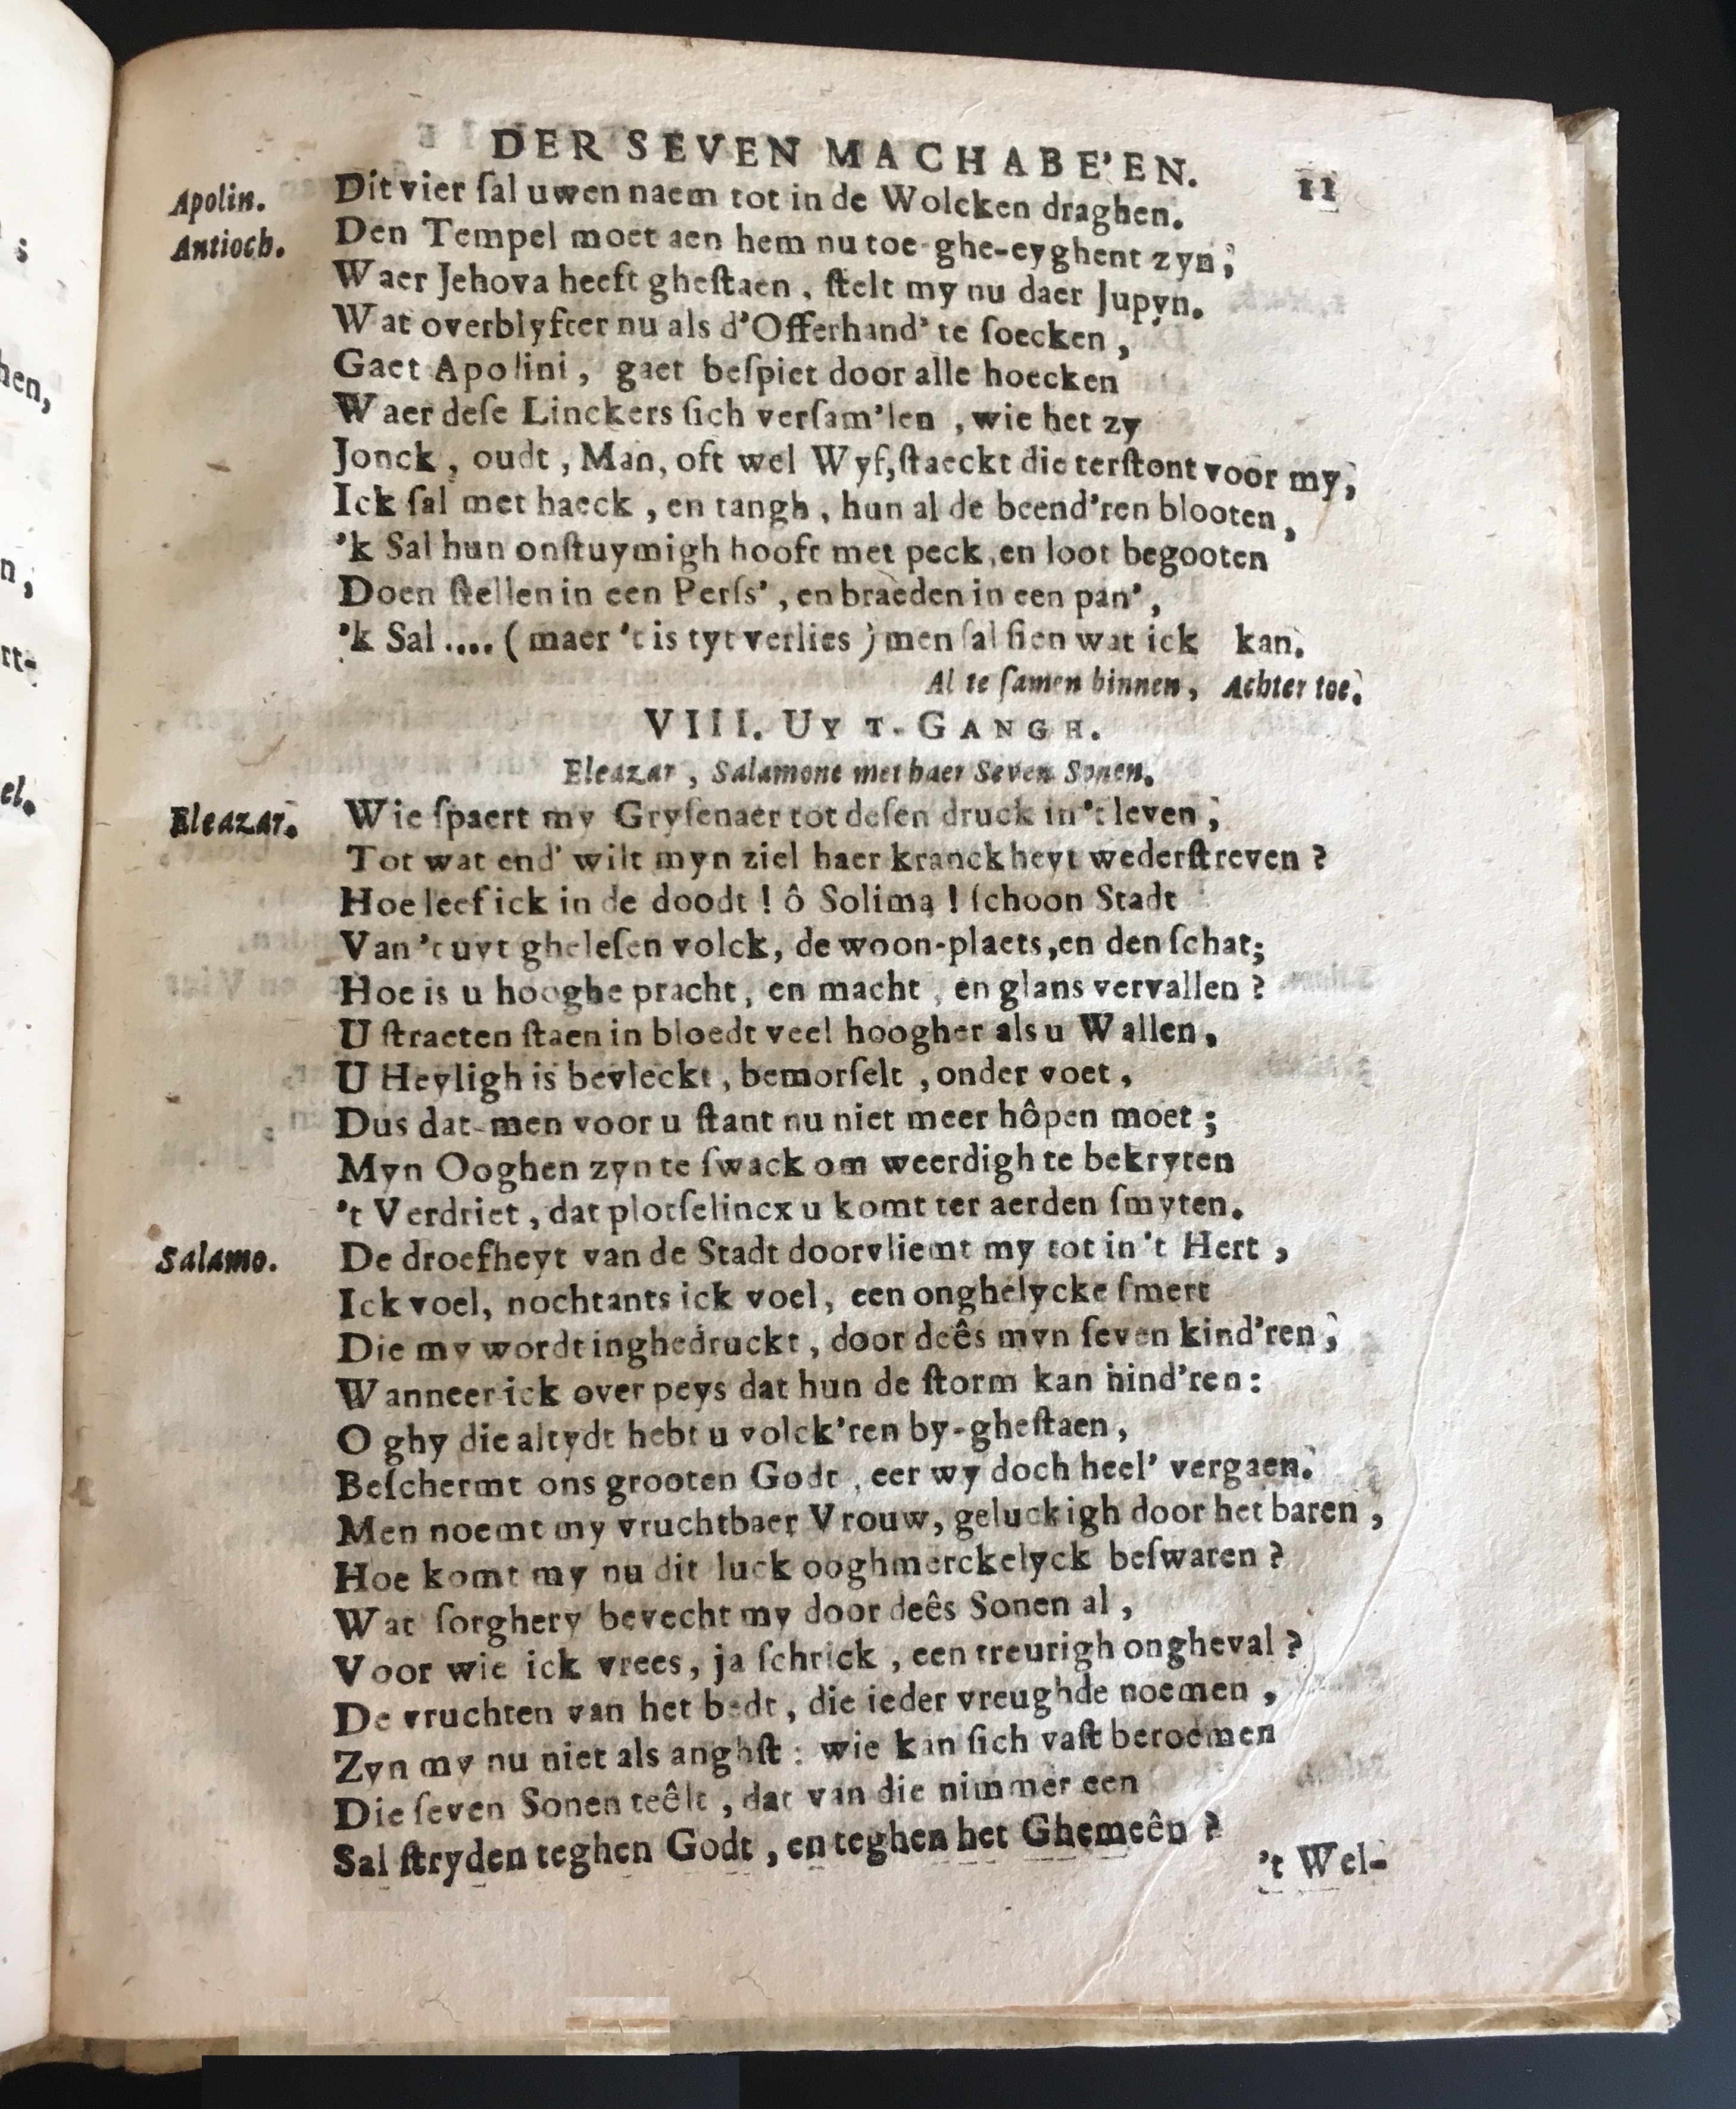 DER SEVEN MACHABE'EN. 11
Apolin. Dit vier ſal uwen naem tot in de Wolcken draghen.
Antioch. Den Tempel moet aen hem nu toe-ghe-eyghent zyn,
Waer Jehova heeft gheſtaen, ſtelt my nu daer Jupyn.
Wat overblyfter nu als d'Offerhand' te ſoecken,
Gaet Apolini, gaet beſpiet door alle hoecken
Waer deſe Linckers ſich verſam'len, wie het zy
Jonck, oudt, Man, oft wel Wyf, ſtaeckt die terſtont voor my,
Ick ſal met haeck, en tangh, hun al de beend'ren blooten,
'k Sal hun onſtuymigh hooft met peck, en loot begooten
Doen ſtellen in een Perſs', en braeden in een pan',
'k Sal .... (maer 't is tyt verlies) men ſal ſien wat ick kan.
Al te ſamen binnen, Achter toe.
VIII. UYT-GANGH.
Eleazar, Salamone met haer Seven Sonen.
Eleazar. Wie ſpaert my Gryſenaer tot deſen druck in 't leven,
Tot wat end' wilt myn ziel haer kranckheyt wederſtreven?
Hoe leef ick in de doodt! ô Solima! ſchoon Stadt
Van 't uyt gheleſen volck, de woon-plaets, en den ſchat;
Hoe is u hooghe pracht, en macht, en glans vervallen?
U ſtraeten ſtaen in bloedt veel hoogher als u Wallen,
U Heyligh is bevleckt, bemorſelt, onder voet,
Dus dat-men voor u ſtant nu niet meer hôpen moet;
Myn Ooghen zyn te ſwack om weerdigh te bekryten
't Verdriet, dat plotſelincx u komt ter aerden ſmyten.
Salamo. De droefheyt van de Stadt doorvliemt my tot in 't Hert,
Ick voel, nochtants ick voel, een onghelycke ſmert
Die my wordt inghedruckt, door deês myn ſeven kind'ren,
Wanneer ick over peys dat hun de ſtorm kan hind'ren:
O ghy die altydt hebt u volck'ren by-gheſtaen,
Beſchermt ons grooten Godt, eer wy doch heel' vergaen.
Men noemt my vruchtbaer Vrouw, geluckigh door het baren,
Hoe komt my nu dit luck ooghmerckelyck beſwaren?
Wat ſorghery bevecht my door deês Sonen al,
Voor wie ick vrees, ja ſchrick, een treurigh ongheval?
De vruchten van het bedt, die ieder vreughde noemen,
Zyn my nu niet als anghſt: wie kan ſich vaſt beroemen
Die ſeven Sonen teêlt, dat van die nimmer een
Sal ſtryden teghen Godt, en teghen het Ghemeên?
't Wel-